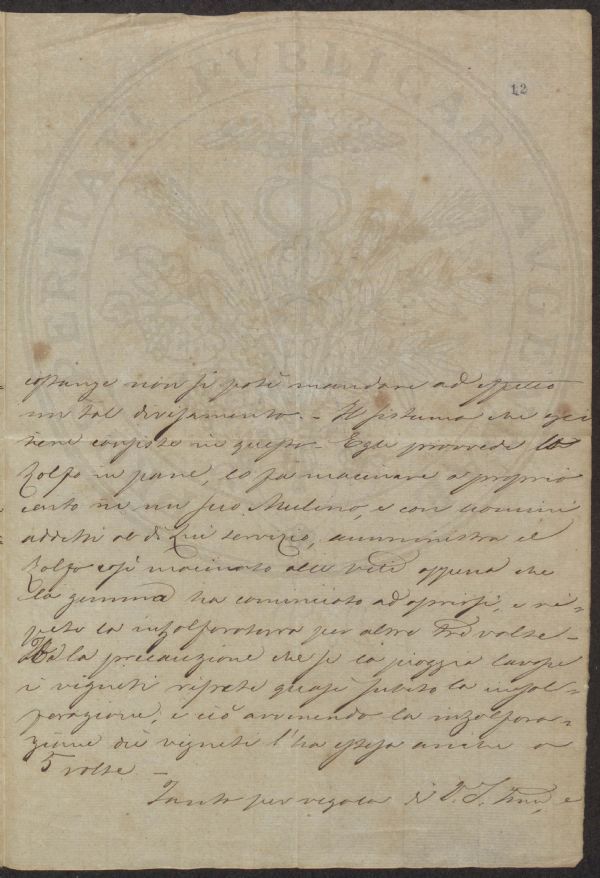 12
PERITATI PUBLICAE AUGE
costanze non si potè mandare ad effetto
un tal divisamento. - Il sistema che egli
tiene consiste in questo - Egli provvede lo
Zolfo in pane, lo fa macinare a proprio
conto in un suo Mulino, e con uomini
addetti al di Lui servizio, amministra il
Zolfo così macinato alle viti appena che
la gemma ha cominciato ad aprirsi, e ri-
pete la inzolforatura per altre tre volte -
Ha la precauzione che se la pioggia lavasse
i vigneti ripete quasi subito la insol-
forazione, e ciò avvenendo la inzolfora-
zione dei vigneti l'ha estesa anche a
5 volte -
Tanto per regola di V. S. Ill.ma, e